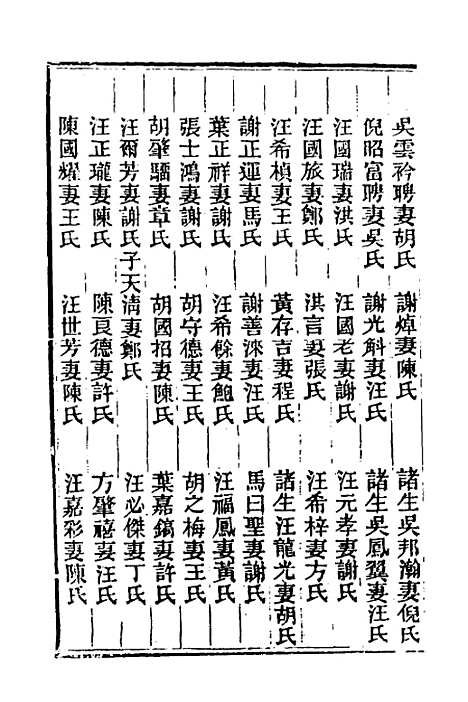 吳雲衿聘妻胡氏　謝焯妻陳氏　諸生吳邦瀚妻倪氏
倪昭富聘妻吳氏　謝光斛妻汪氏　諸生吳鳳翼妻汪氏
汪國瑞妻洪氏　汪國老妻謝氏　汪元孝妻謝氏
汪國旅妻鄭氏　洪言妻張氏　汪希梓妻方氏
汪希楨妻王氏　黃存吉妻程氏　諸生汪龍光妻胡氏
謝正運妻馬氏　謝善淶妻汪氏　馬曰聖妻謝氏
葉正祥妻謝氏　汪希餘妻鮑氏　汪福鳳妻黃氏
張士鴻妻謝氏　胡守德妻王氏　胡之梅妻王氏
胡肇驕妻章氏　胡國招妻陳氏　葉嘉鎬妻許氏
汪爾芳妻謝氏子天淸妻鄭氏　汪必傑妻丁氏
汪正瓏妻陳氏　陳良德妻許氏　方肇禧妻汪氏
陳國耀妻王氏　汪世芳妻陳氏　汪嘉彩妻陳氏